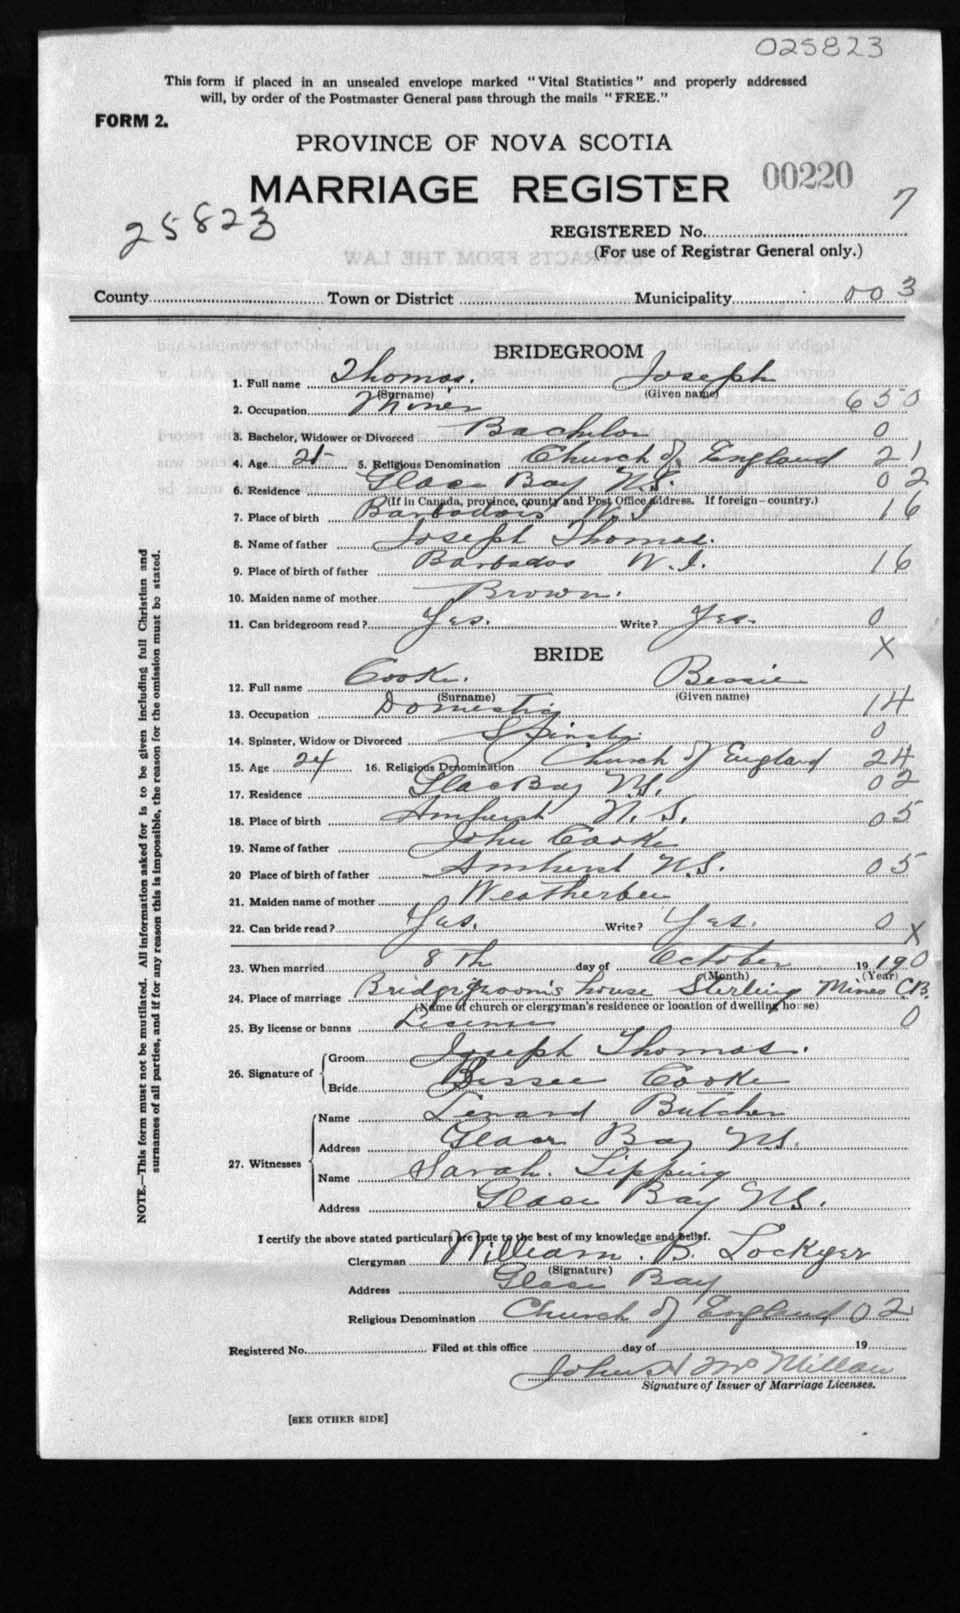 025823
This form if placed in an unsealed envelope marked "Vital Statistics" and properly addressed
will, by order of the Postmaster General pass through the mails "FREE."
FORM 2.
PROVINCE OF NOVA SCOTIA
MARRIAGE REGISTER 00220
25823
7
REGISTERED No.
(For use of Registrar General only.)
County Town or District Municipality 003
BRIDEGROOM
1. Full name Thomas. Joseph
(Surname) (Given name)
2. Occupation Miner 650
3. Bachelor, Widower or Divorced Bachelor 0
4. Age 21 5. Religious Denomination Church of England 21
6. Residence Glace Bay N.S. 02
(If in Canada, province, county and Post Office address. If foreign—country.)
7. Place of birth Barbados W.I 16
8. Name of father Joseph Thomas.
9. Place of birth of father Barbados W.I. 16
10. Maiden name of mother Brown.
11. Can bridegroom read? Yes. Write? Yes. 0
X
BRIDE
12. Full name Cooke. Bessie
(Surname) (Given name)
13. Occupation Domestic 14
14. Spinster, Widow or Divorced Spinster 0
15. Age 24 16. Religious Denomination Church of England 24
17. Residence Glace Bay N.S. 02
18. Place of birth Amherst N.S. 05
19. Name of father John Cooke
20 Place of birth of father Amherst N.S. 05
21. Maiden name of mother Weatherbee
22. Can bride read? Yes. Write? Yes. 0
X
23. When married 8th day of October 19
(Month) (Year)
24. Place of marriage Bridegroom's house Sterling Mines C.B.
(Name of church or clergyman's residence or location of dwelling house)
25. By license or banns License 0
26. Signature of
Groom Joseph Thomas.
Bride Bessee Cooke
27. Witnesses
Name Lenard Butcher
Address Glace Bay NS.
Name Sarah. Lipping
Address Glace Bay NS.
I certify the above stated particulars are true to the best of my knowledge and belief.
Clergyman William. B. Lockyer
(Signature)
Address Glace Bay
Religious Denomination Church of England 02
Registered No. Filed at this office day of 19
John McMillan
Signature of Issuer of Marriage Licenses.
[SEE OTHER SIDE]
NOTE.—This form must not be mutilated. All information asked for is to be given including full Christian and
surnames of all parties, and if for any reason this is impossible, the reason for the omission must be stated.